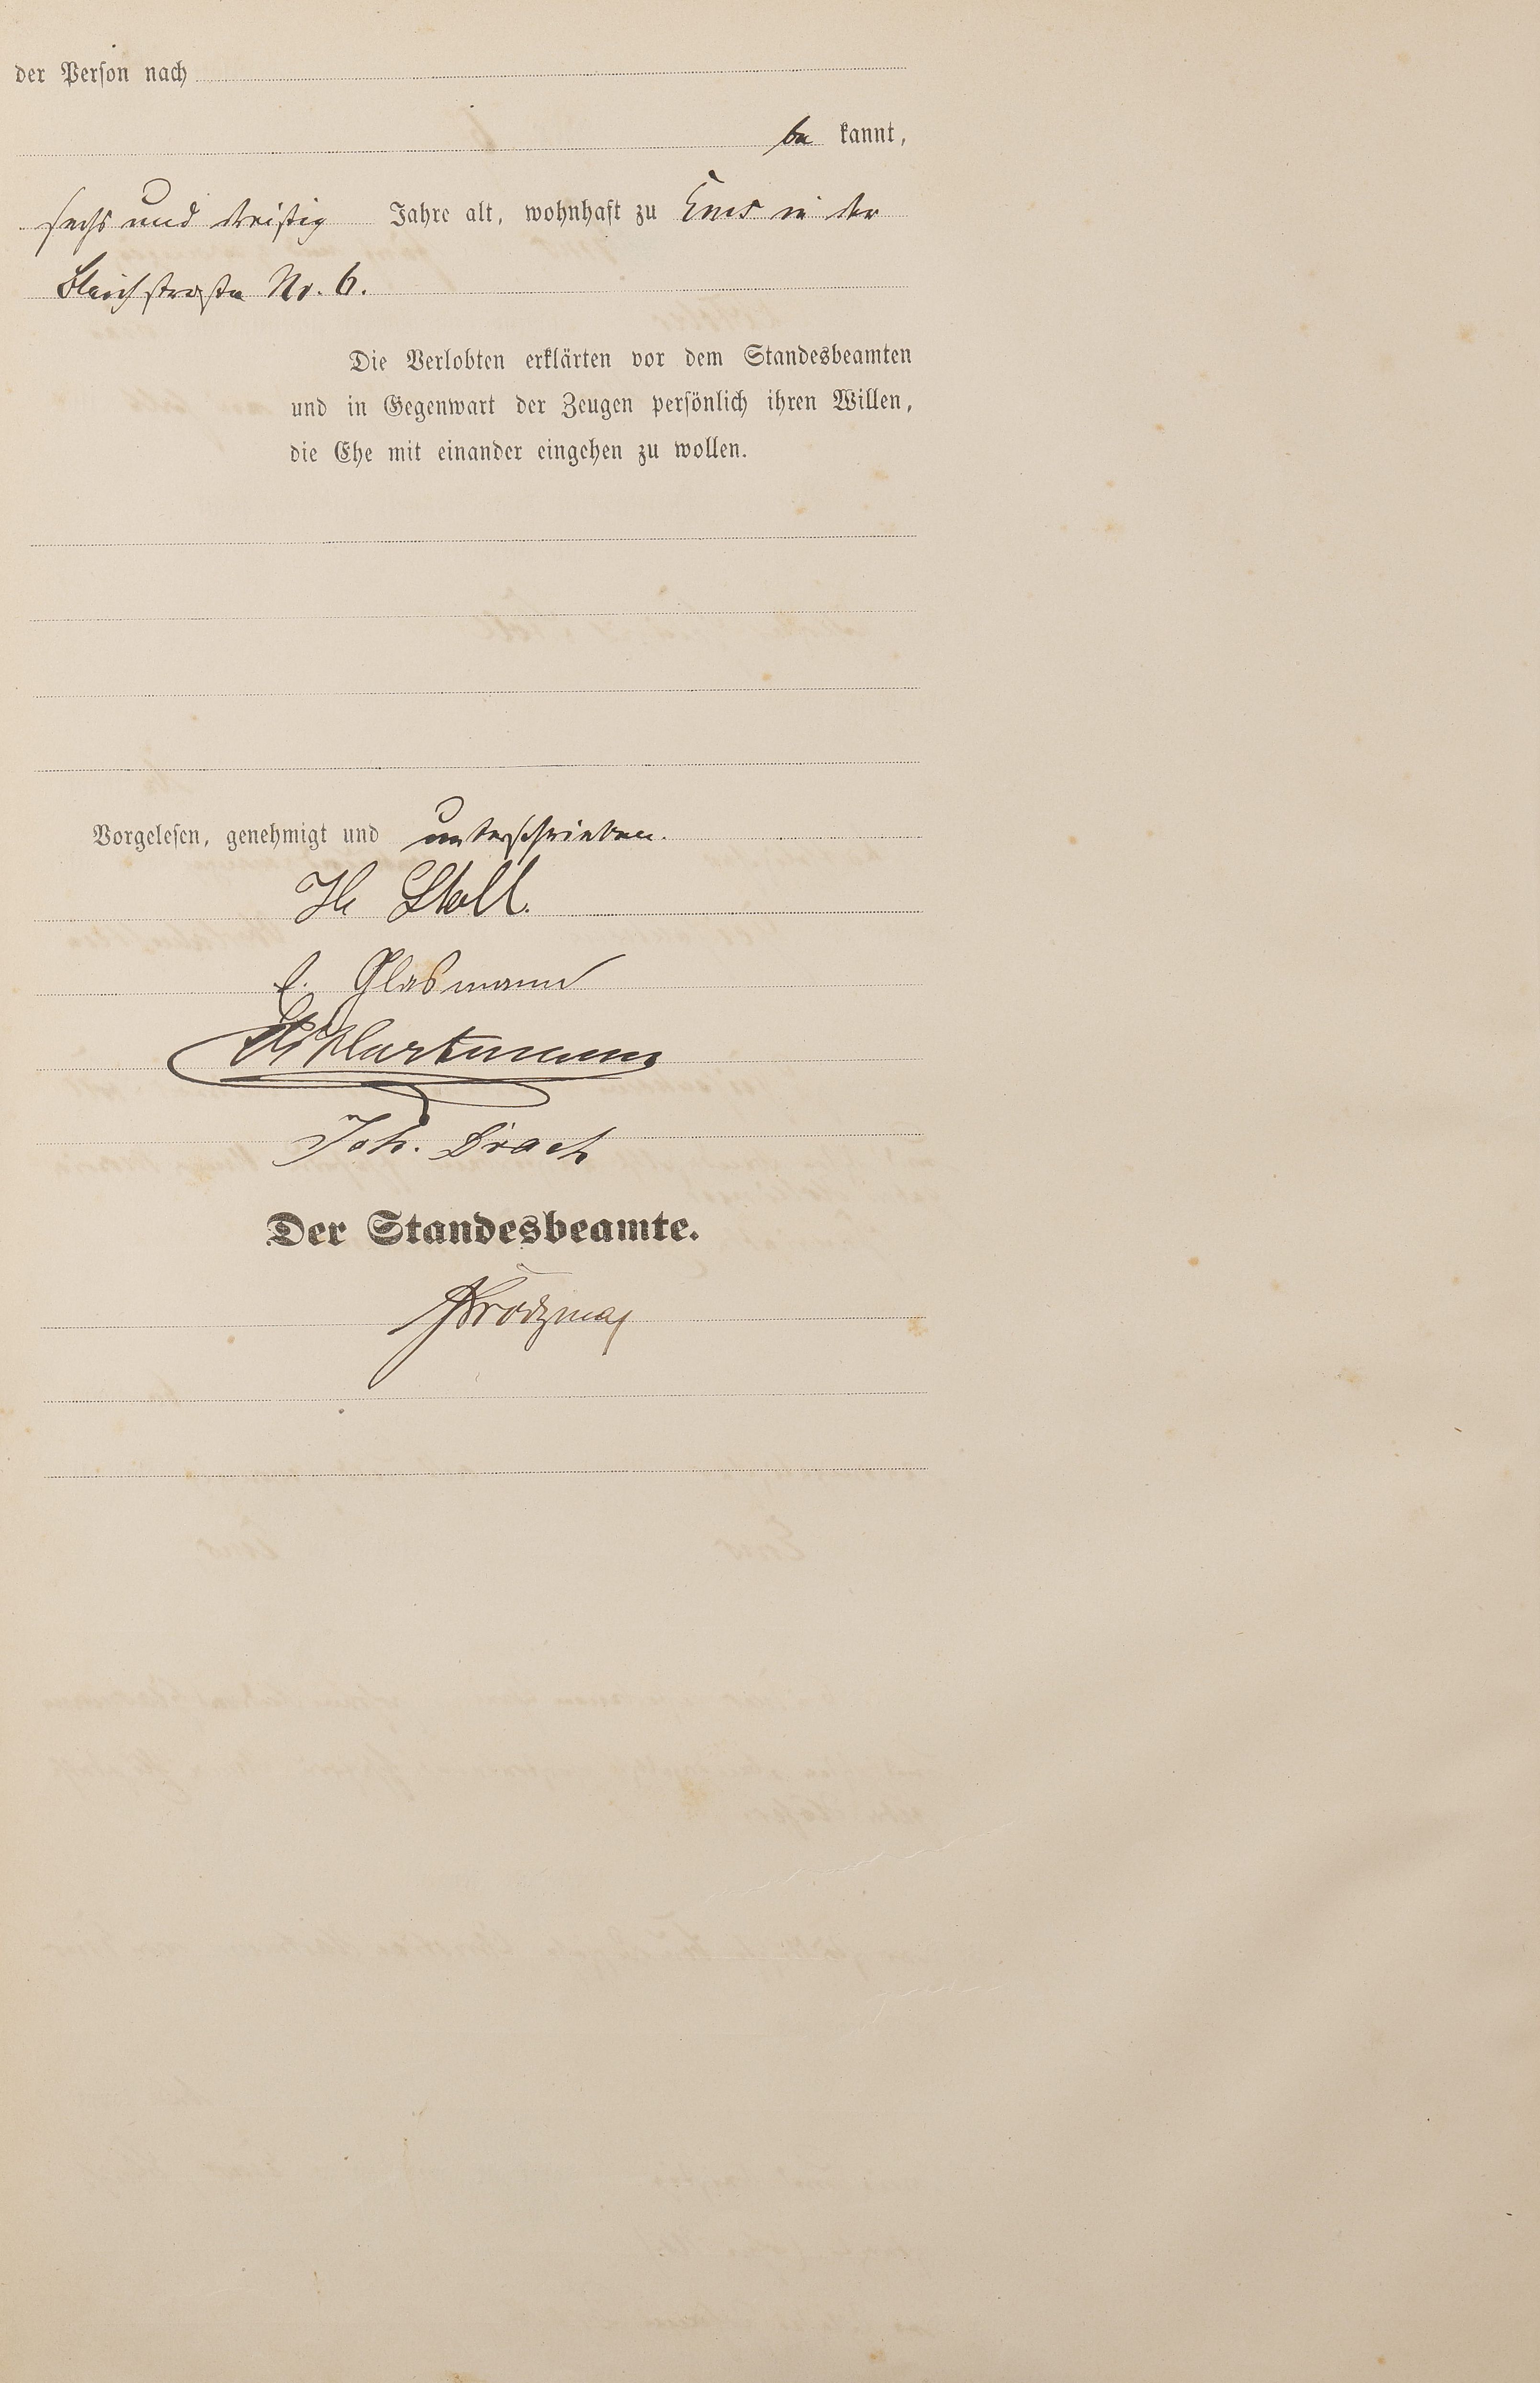 der Person nach
be kannt,
sechs und dreißig Jahre alt, wohnhaft zu Ems in der
Bleichstraße No. 6.
Die Verlobten erklärten vor dem Standesbeamten
und in Gegenwart der Zeugen persönlich ihren Willen,
die Ehe mit einander eingehen zu wollen.
Vorgelesen, genehmigt und unterschrieben.
Stoll.
E. Glasmann
Hartmann
Joh. Drach
Der Standesbeamte.